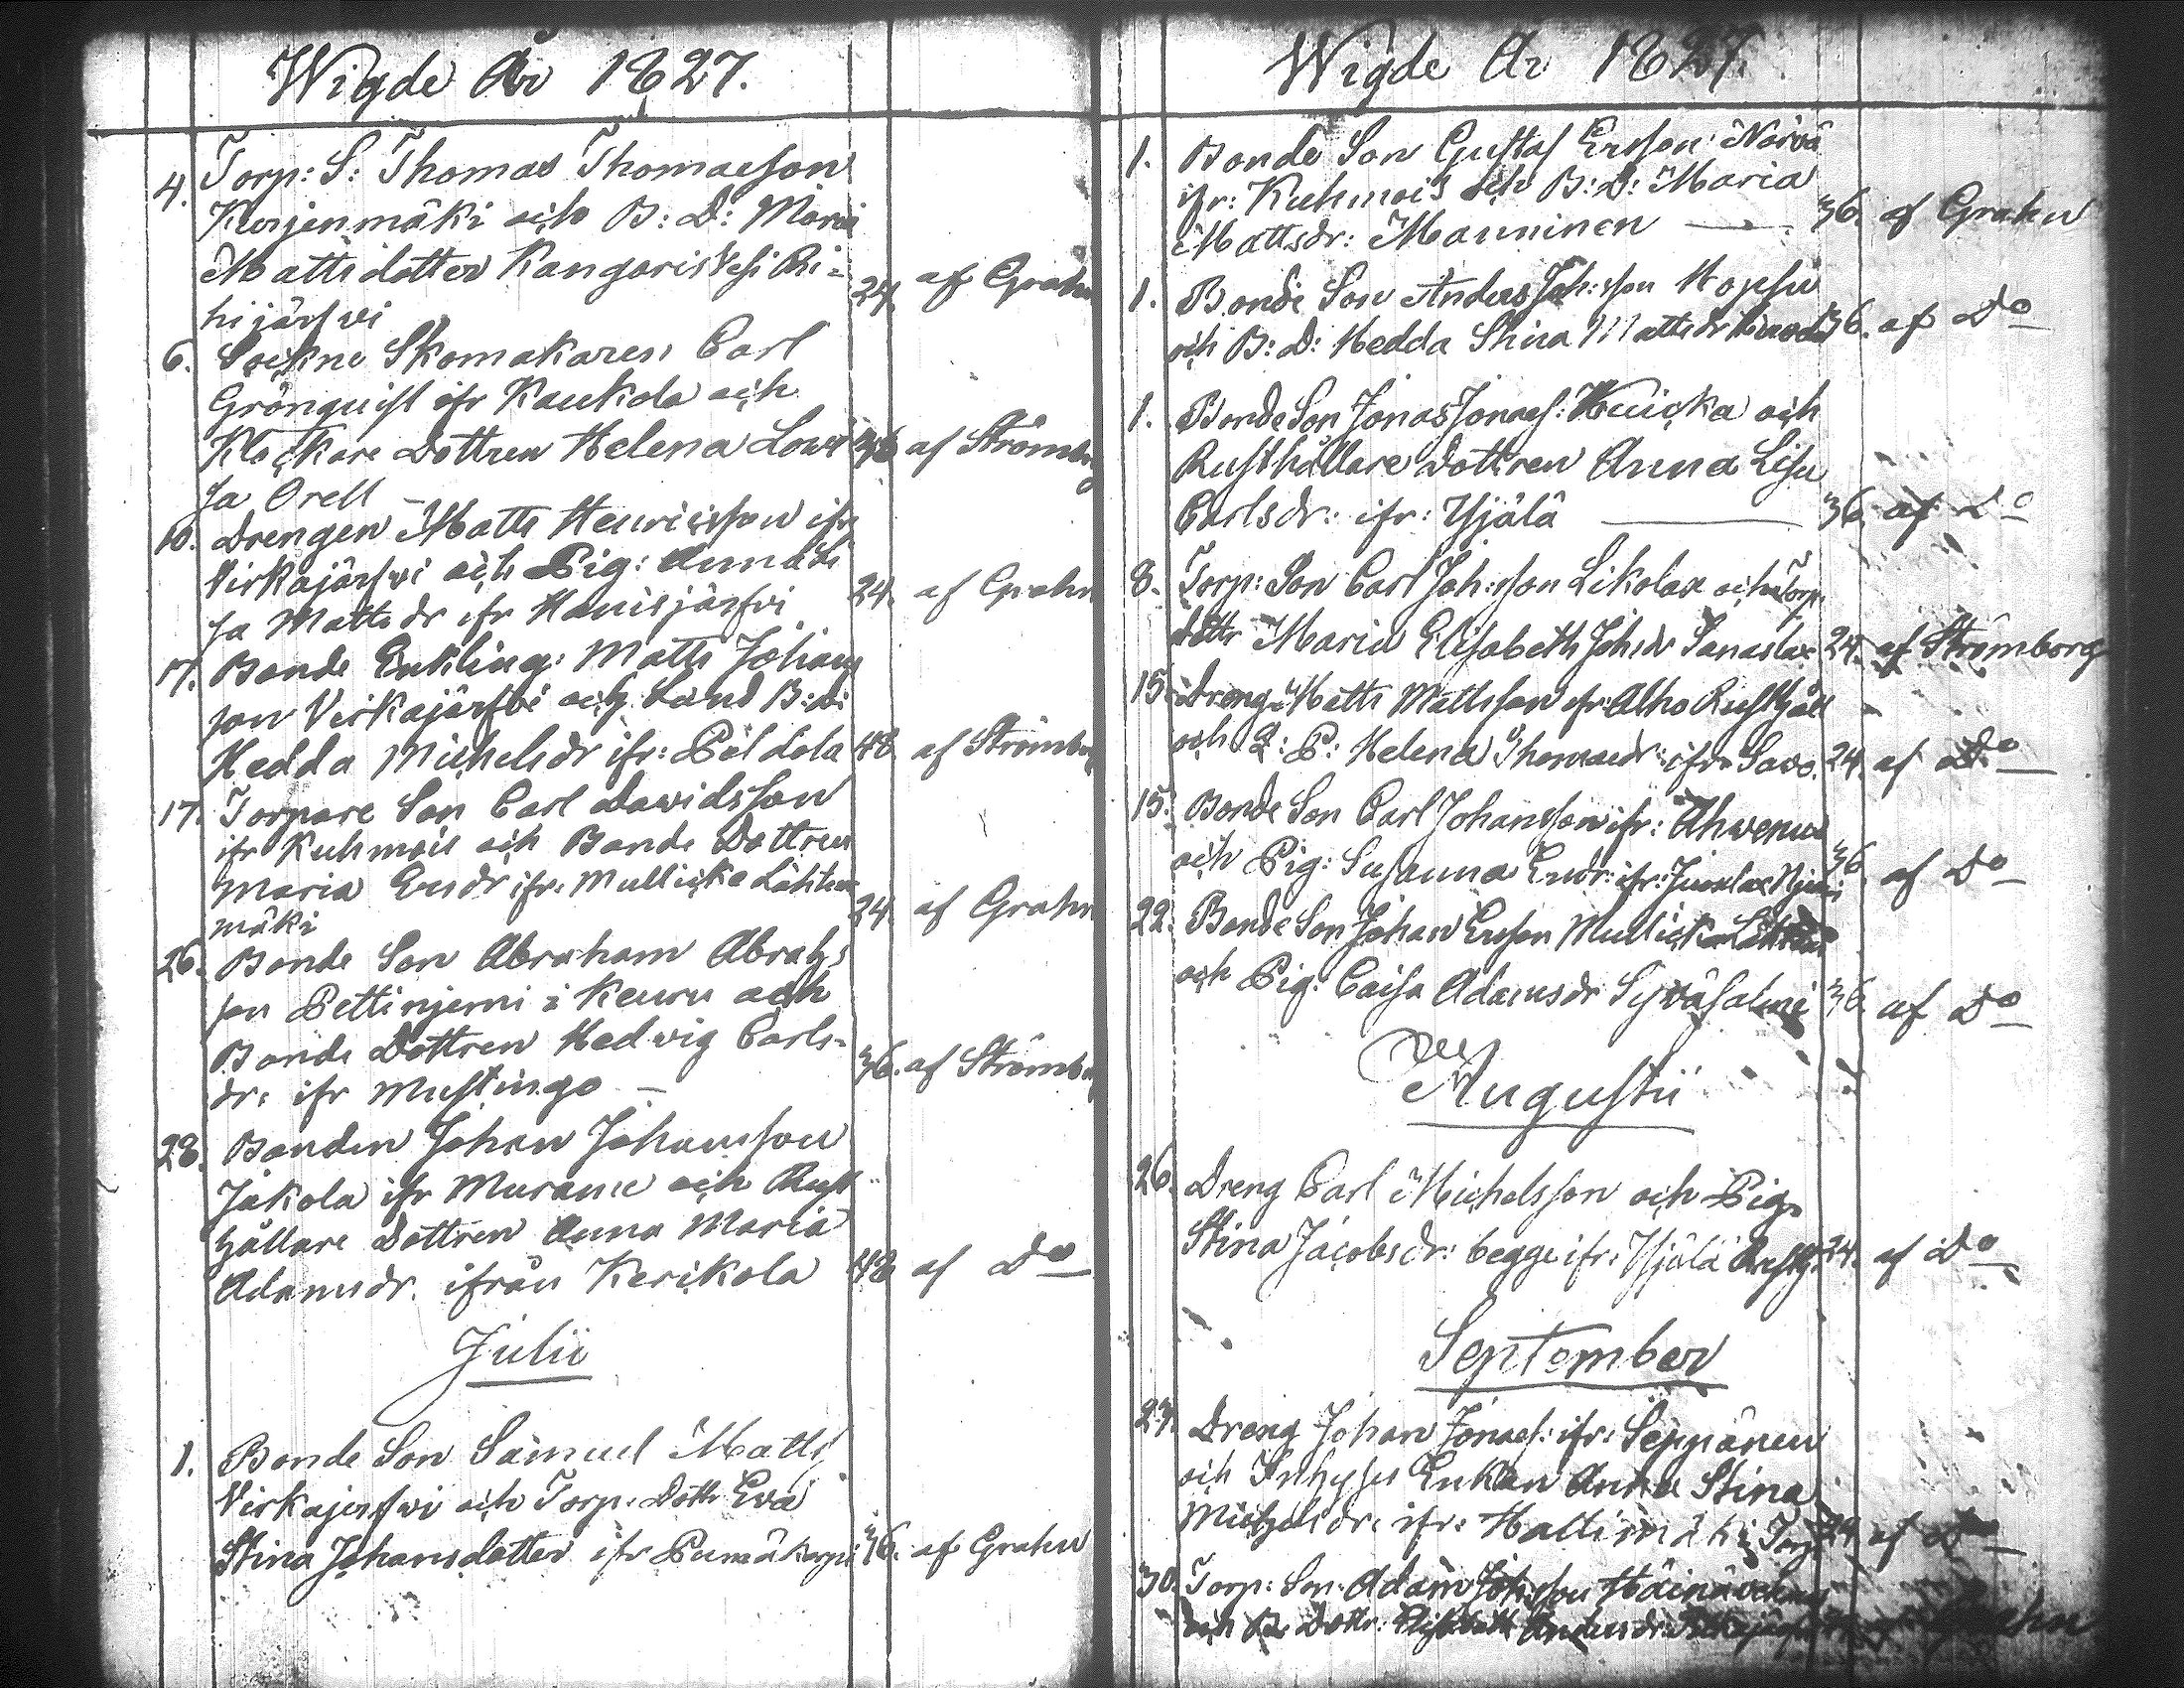 Wigde År 1827.
4. Torp: S: Thomas Thomasson
Kurjenmäki och B: D: Maria
Mattsdotter Kangariskesi Ri-
hijärfwi 24. af Grahn
6. Sockne Skomakaren Carl
Grönquist ifr Kaukola och
Klockare Dottren Helena Lowi
sa Orell — 36 af Strömborg
10. Drengen Matts Henricsson ifr
Virkajärfwi och Pig: Anna Li
sa Mattsdr ifr Hauisjärfvi 24. af Grahn
17. Bonde Enkling: Matts Johans
son Virkajärfvi och Land B: D:
Hedda Michelsdr ifr: Pöldola 48 af Strömbo
17. Torpare Son Carl Davidsson
ifr Kuhmois och Bonde Dottren
Maria Ersdr ifr: Mullicka Lähten
mäki 24. af Grahn
26. Bonde Son Abraham Abrahs
son Pettinjemi i Keuru och
Bonde Dottren Hedvig Carls-
dr: ifr Mustingo — 36. af Strömbo
28. Bonden Johan Johansson
Jakola ifr Murame och Rust
hållare Dottren Anna Maria
Adamsdr. ifrån Kerikola 48 af Do
Julii
1. Bonde Son Samuel Matts
Virkajerfwi och Torp: Dottr Eva
Stina Johansdotter ifr Pumäkorpi 36. af Grahn
Wigde År 1827.
1. Bonde Son Gustaf Ersson Norvä
ifr: Kuhmois och B: D: Maria
Mattsdr: Mauninen — 36. af Grahn
1. Bonde Son Anders Joh:sson Hopsu
och B: D: Hedda Stina Mattsdr 36. af Do
1. Bonde Son Jonas Jonass: Kuicka och
Rusthållare Dottren Anna Lisa
Carlsdr: ifr: Hjälä — 36 af Do
8. Torp: Son Carl Joh:sson Likolax och Torp
dottr Maria Elisabeth Johsdr Sanaslax 24. af Strömborg
15. Dreng Matts Mattsson ifr: Alho Rusthåll
och P: Helena Thomasdr: ifr: Savo. 24. af Do
15. Bonde Son Carl Johansson ifr: Ahvenus
och Pig: Susanna Ersdr: ifr: 36 af Do
22. Bonde Son Johan Ersson Mullicka
och Pig: Caisa Adamsdr Syväsalmi 36. af Do
Augustii
26. Dreng Carl Michelsson och Pig:
Stina Jacobsdr: begge ifr: Hjälä Rusth. 24. af Do
September
23. Dreng Johan Jonass: ifr: Seppänen
och Inhyses Enkan Anna Stina
Michelsdr: ifr: Haltimäki Torp 24 af Do
30. Torp: Son: Adam Joh:sson
och B: Dottr: Elisabeth Andersdr: af Grahn